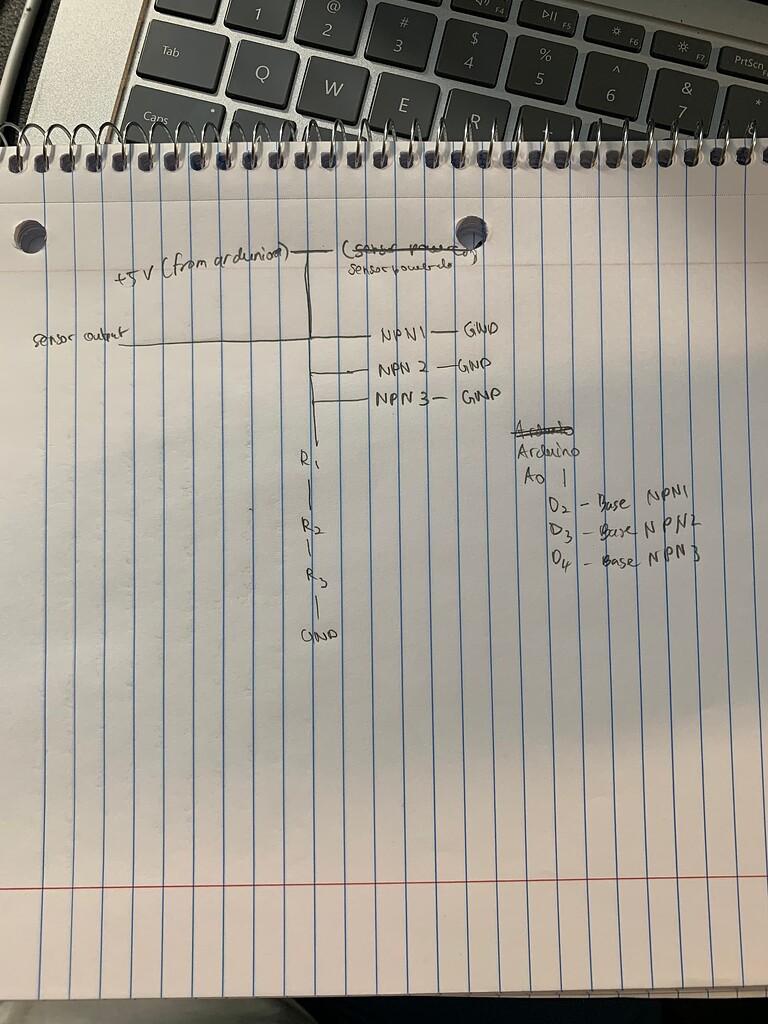 @ # $ % ^ & *
1 2 3 4 5 6 7
F4 F5 F6 F7 PrtScn
Tab Q W E R
Caps
+5V (from arduniod) (sensor power
sensor power
sensor output NPN1 GND
NPN 2 GND
NPN 3 GND
Arduino
R1 Arduino
A0
D2 - Base NPN1
R2 D3 - Base NPN2
R3 D4 - Base NPN3
GND